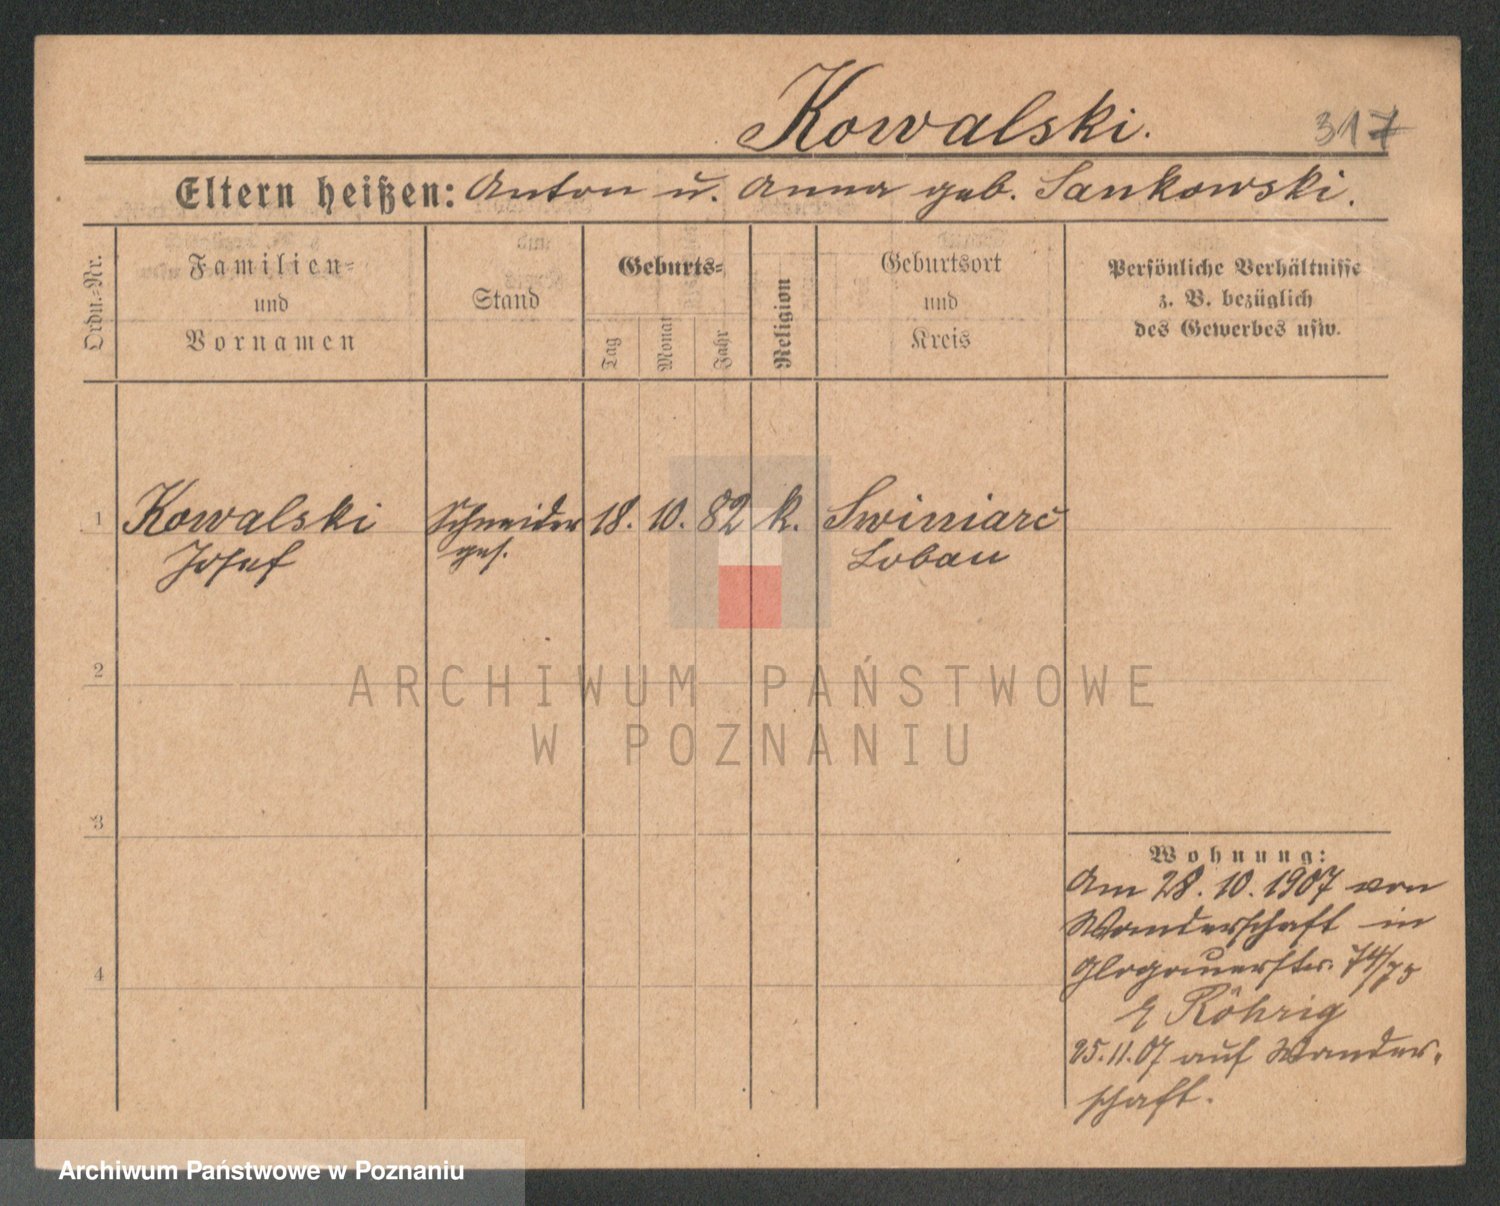 Kowalski.
317
Eltern heißen: Anton u. Anna geb. Sankowski.
Ordn.-Nr.
Familien-
und
Vornamen
Stand
Geburts-
Tag
Monat
Jahr
Religion
Geburtsort
und
Kreis
Persönliche Verhältnisse
z. B. bezüglich
des Gewerbes usw.
1 Kowalski Schneider 18. 10. 82 k. Swiniarc
Josef ges. Lobau
2
ARCHIWUM PAŃSTWOWE
W POZNANIU
3
Wohnung:
Am 28. 10. 1907 von
Wanderschaft in
Glogauerstr. 74/75
Röhrig
25. 11. 07 auf Wander-
schaft.
4
Archiwum Państwowe w Poznaniu